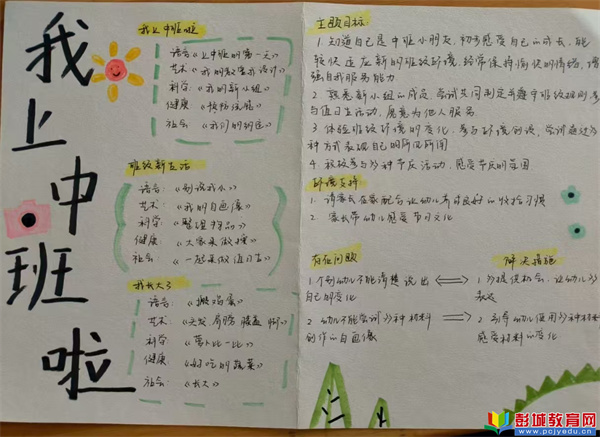 我上中班啦
我上中班啦
语言《上中班的第一天》
艺术《我的教室我设计》
科学《我的新小组》
健康《快快洗脸》
社会《我们的约定》
班级新生活
语言：《别说我小》
艺术：《我的自画像》
科学《整理物品》
健康：《大家来做操》
社会《一起来做值日》
我长大了
语言：《搬鸡蛋》
艺术：《头发 肩膀 膝盖 脚》
科学《萝卜比一比》
健康《好吃的蔬菜》
社会：《长大》
主题目标：
1. 知道自己是中班小朋友，初步感受自己的成长，能
较快适应新的班级环境，经常保持愉快的情绪，增
强自我服务能力
2. 熟悉新小组的成员，尝试共同制定并遵守班级规则，参
与值日生活动，愿意为他人服务
3. 体验班级环境的变化，参与环境创设，尝试通过多
种方式表现自己的所见所闻
4. 积极参与多种节庆活动，感受节庆的氛围
环境支持
1. 请家长在家配合让幼儿养成良好的收拾习惯
2. 家长带幼儿感受节日文化
存在问题
1. 个别幼儿不能清楚说出
自己的变化
2. 幼儿不能尝试多种材料
创作的自画像
解决措施
1. 多提供机会，让幼儿多
表达
2. 引导幼儿使用多种材
感受材料的变化
彭城教育网
www.pcjyedu.cn